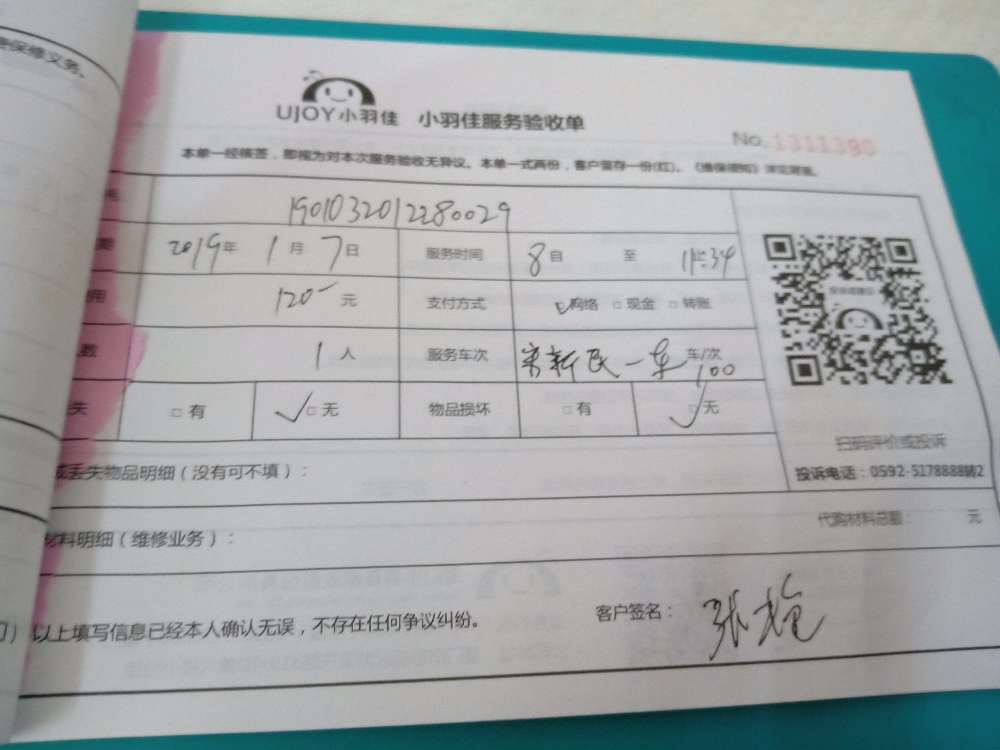 保修义务。
UJOY小羽佳 小羽佳服务验收单
No.1311390
本单一经核签，即视为对本次服务验收无异议。本单一式两份，客户留存一份(红)。《维保须知》详见背面。
1901032012280029
期 2019年 1月 7日 服务时间 8自 至 11:34
用 120- 元 支付方式 网络 □现金 □转账
数 1人 服务车次 宋新民一车 车/次 100
失 □有 ✓□无 物品损坏 □有 ✓□无
扫码评价或投诉
投诉电话：0592-5178888转2
或丢失物品明细（没有可不填）：
材料明细（维修业务）： 代购材料总额： 元
以上填写信息已经本人确认无误，不存在任何争议纠纷。 客户签名：张